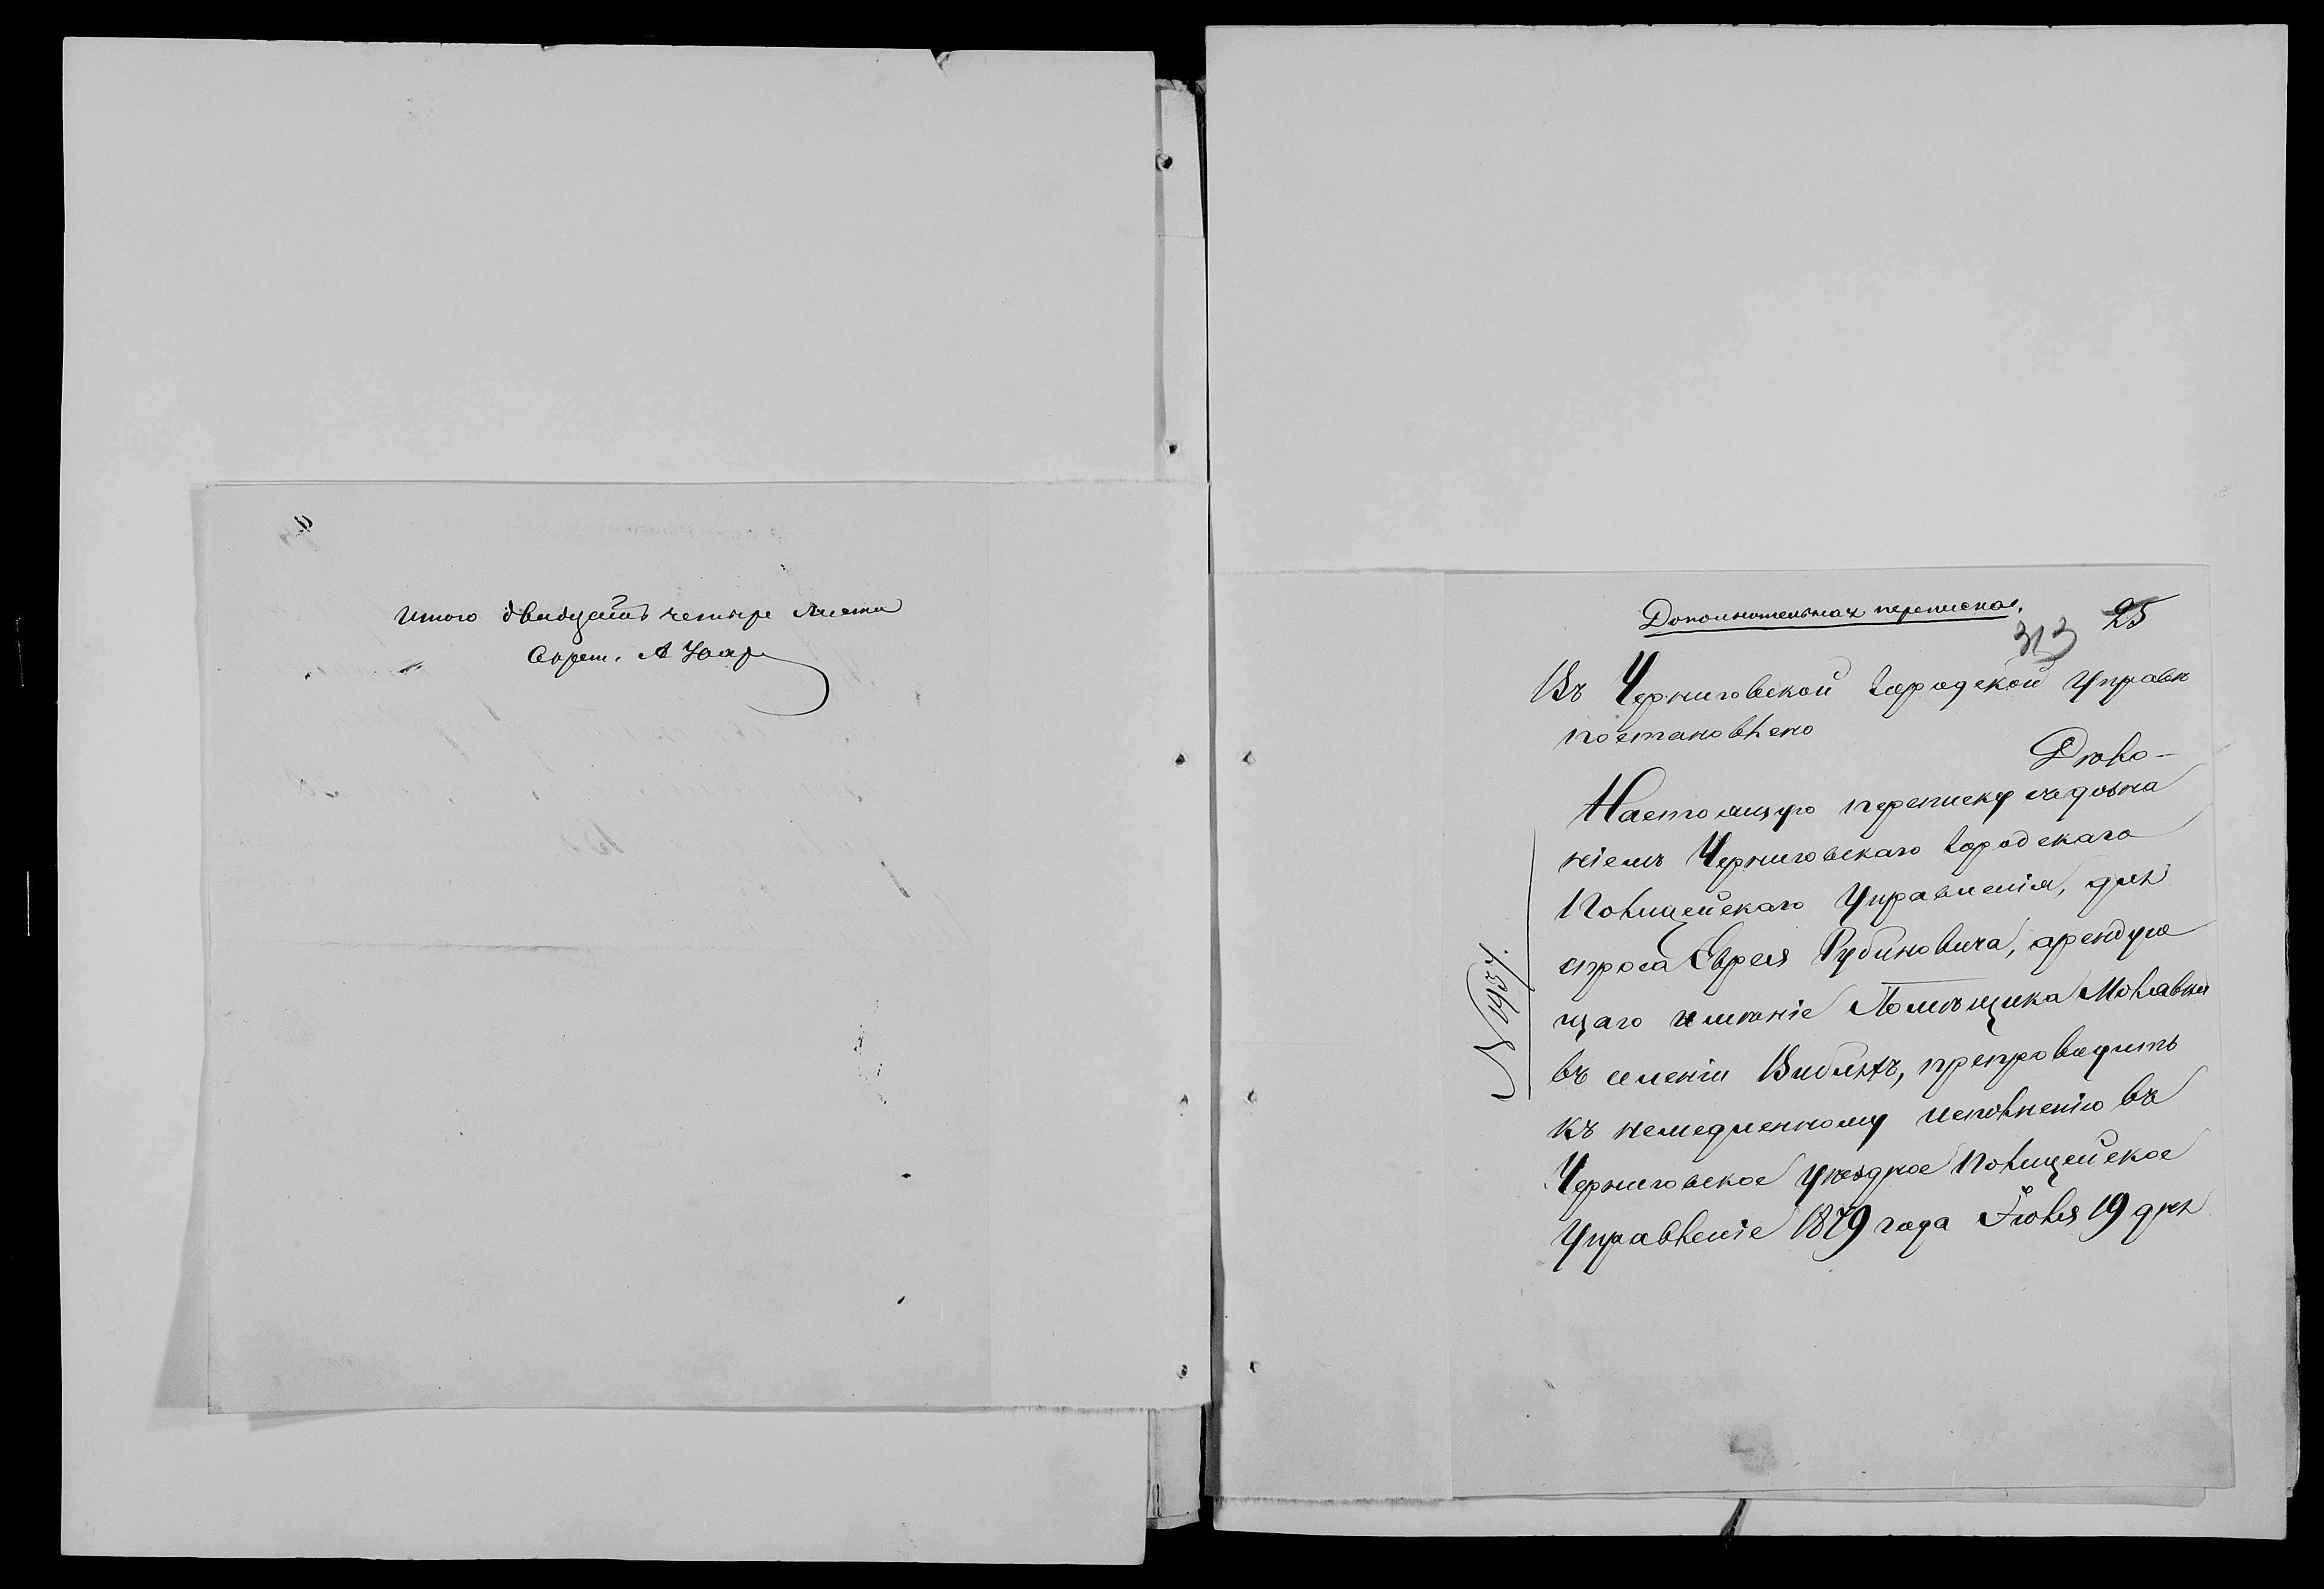 Итого двадцать четыре листа
Секрет. А
Дополнительная переписка.
25
313
Въ Черниговской городской Управѣ
постановлено
Дѣло-
Настоящую переписку съ дозна
ніемъ Черниговскаго городскаго
Полицейскаго Управленія, для
спроса Еврея Рубиновича, арендую
щаго имѣніе Помѣщика Молявки
въ селеніи Выбляхъ, препроводить
къ немедленному исполненію въ
Черниговское уѣздное Полицейское
Управленіе 1879 года Іюля 19 дня
№ 4957.